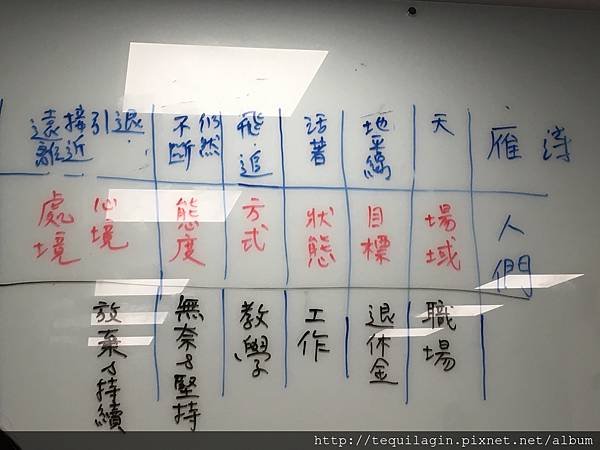 詩
雁
天
地平線
活著
飛、追
仍然
不斷
退、
引
接近
遠離
人們
場域
目標
狀態
方式
態度
心境
處境
職場
退休金
工作
教學
無奈&堅持
放棄&持續
http://tequilagin.pixnet.net/album